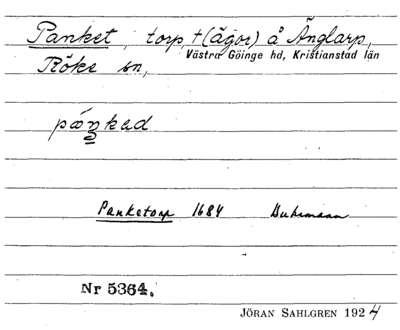 Panket, torp, † (ägor) å Änglarp,
Västra Göinge hd, Kristianstad län
Röke sn,
Panketorp 1684 Buhrmann
Nr 5364.
JÖRAN SAHLGREN 1924